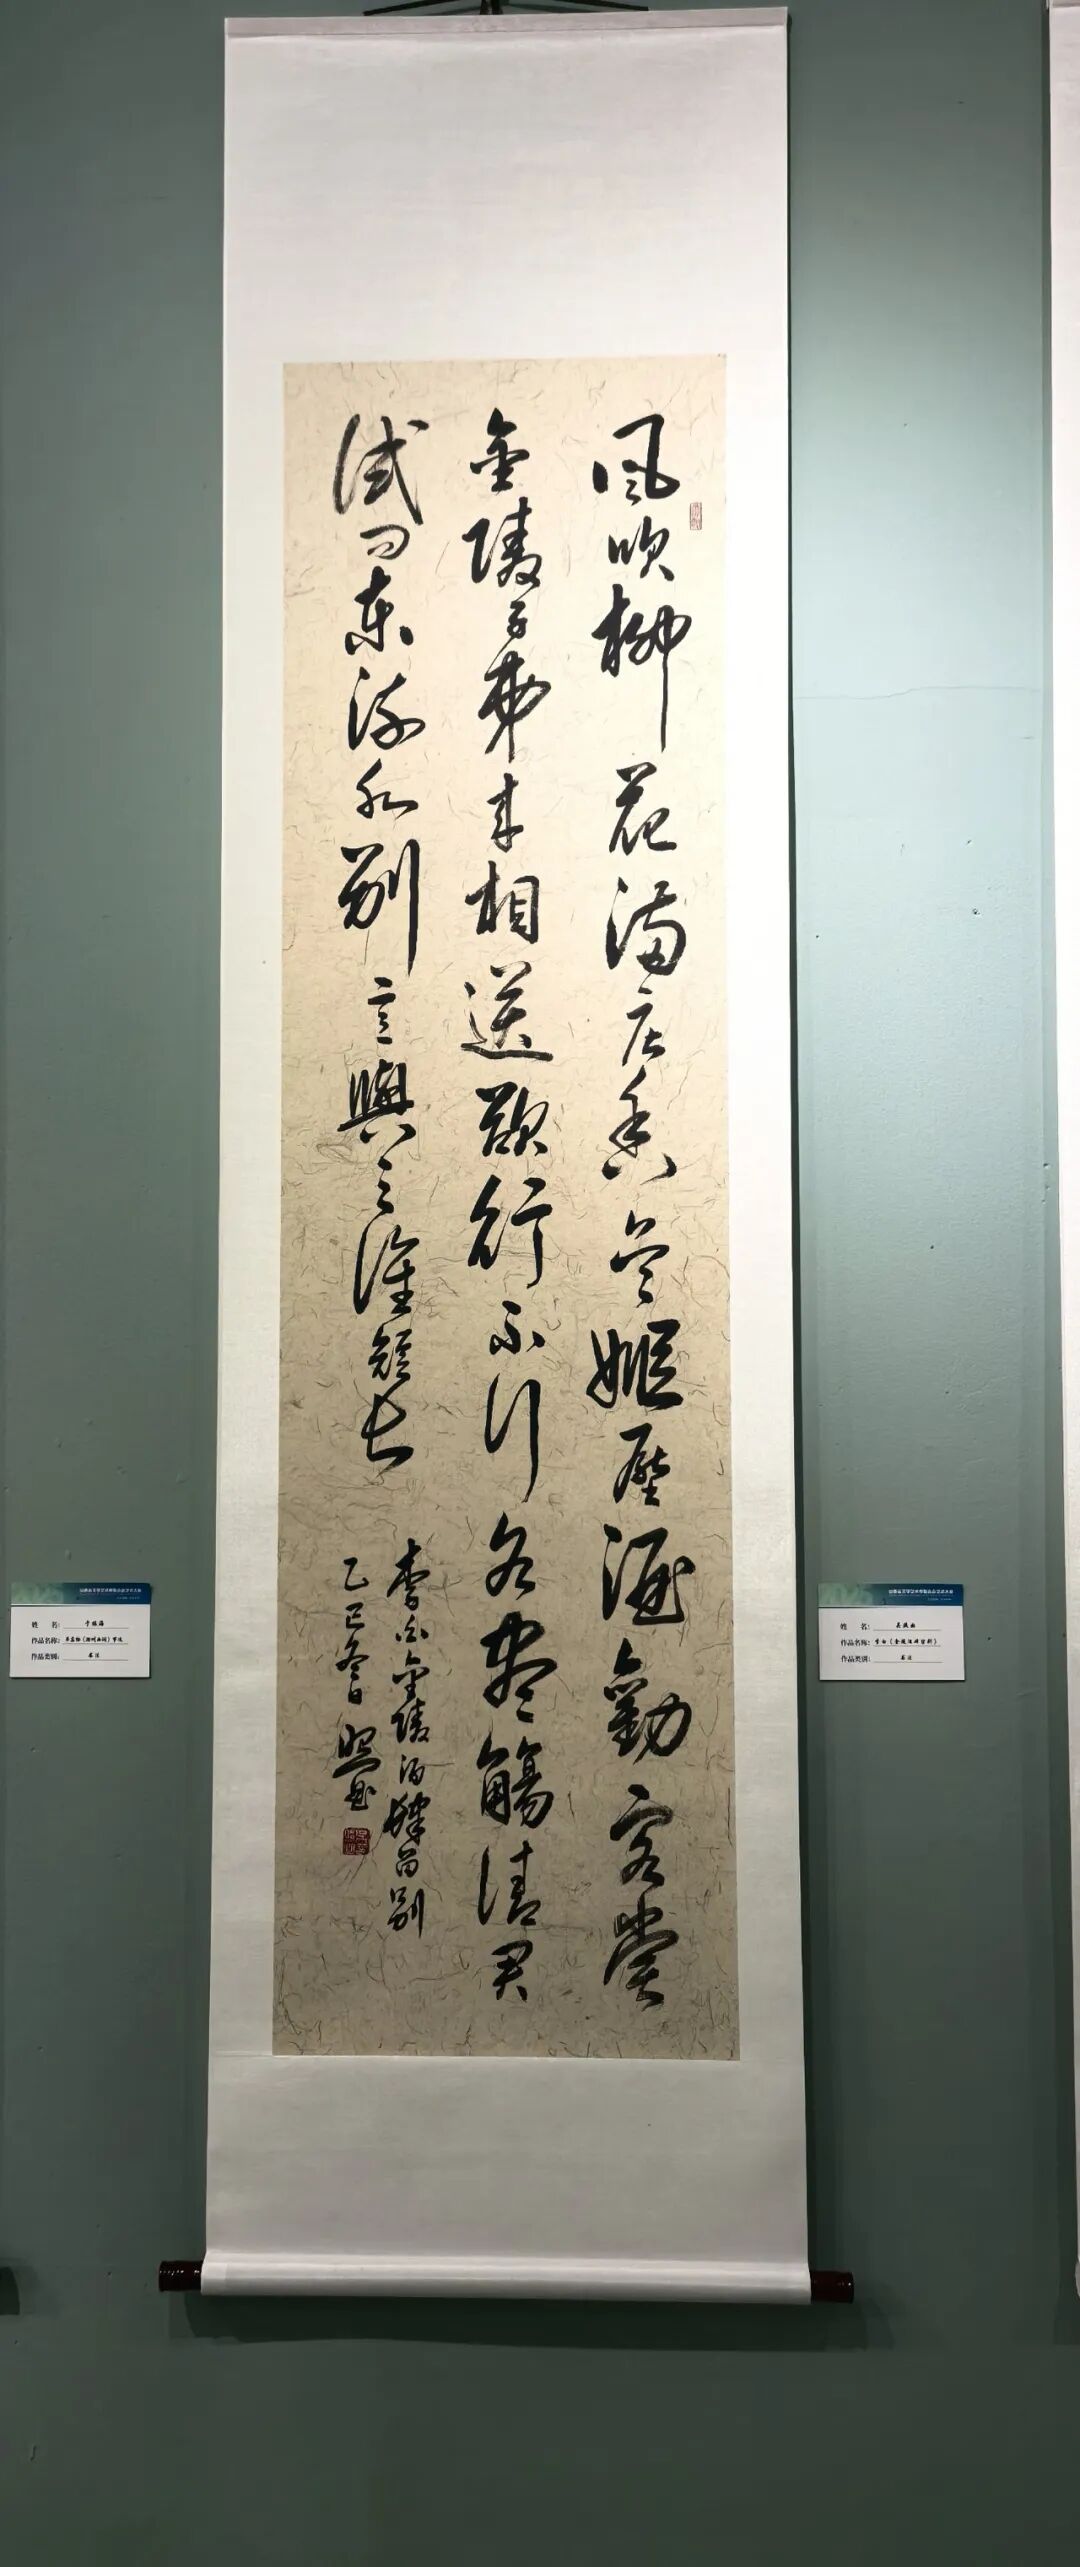 風吹柳花滿店香吳姬壓酒勸客嘗
金陵子弟來相送欲行不行各盡觴請君
試問東流水別意與之誰短長
李白金陵酒肆留別
乙巳冬日
姓 名:
作品名称:
作品类别: 书法
姓 名:
作品名称: 李白《金陵酒肆留别》
作品类别: 书法